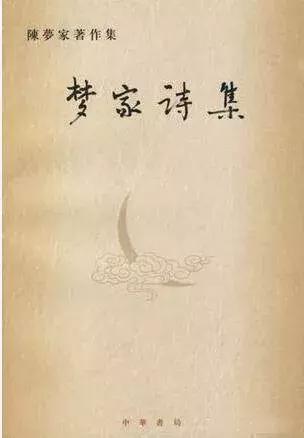 陳夢家著作集
梦家诗集
中華書局